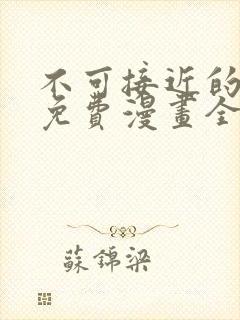 不可接近的
免費漫畫全
蘇錦梁